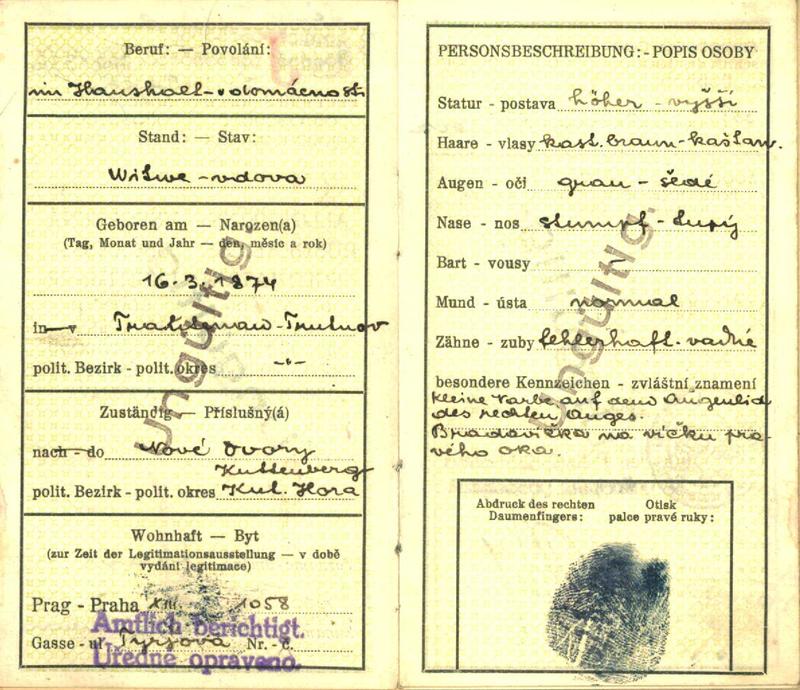 Beruf: — Povolání:
im Haushalt - v domácnosti
Stand: — Stav:
Witwe - vdova
Geboren am — Narozen(a)
(Tag, Monat und Jahr — den, měsíc a rok)
16. 3. 1874
in - v Trautenau - Trutnov
polit. Bezirk - polit. okres -"-
Zuständig — Příslušný(á)
nach - do Nové Dvory
Kuttenberg
polit. Bezirk - polit. okres Kut. Hora
Wohnhaft — Byt
(zur Zeit der Legitimationsausstellung — v době
vydání legitimace)
Prag - Praha XII. 1058
Amtlich berichtigt.
Gasse - ul. Tyršova Nr. - č.
Úředně opraveno.
Ungültig.
PERSONSBESCHREIBUNG: - POPIS OSOBY
Statur - postava höher - vyšší
Haare - vlasy kast. braun - kaštan.
Augen - oči grau - šedé
Nase - nos stumpf - tupý
Bart - vousy -
Mund - ústa normal
Zähne - zuby fehlerhaft - vadné
besondere Kennzeichen - zvláštní znamení
Kleine Narbe auf dem Augenlid
des rechten Auges.
Bradavička na víčku pra-
vého oka.
Ungültig.
Abdruck des rechten Otisk
Daumenfingers: palce pravé ruky: